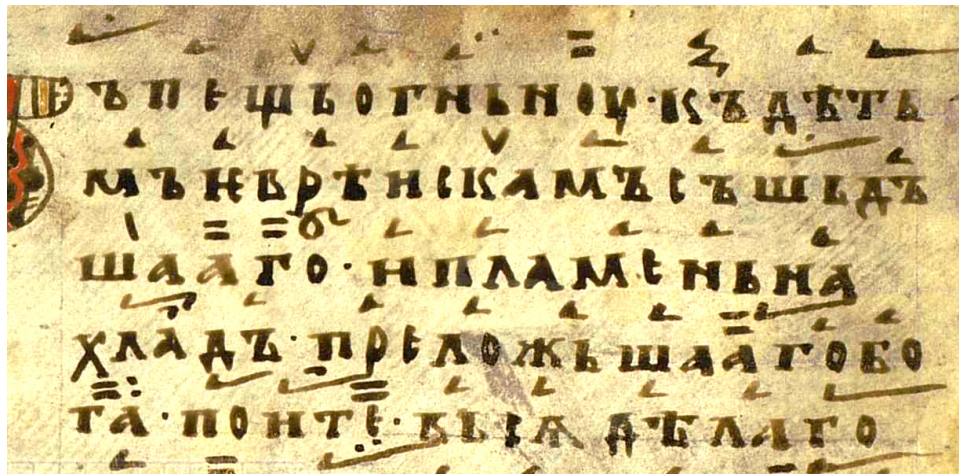 ъпещьогньноу·къдѣть
мъѥврѣискамъсъшьдъ
шааго·ипламеньна
хладъ·преложьшаагобо
га·поите·вьсѧдѣлаго